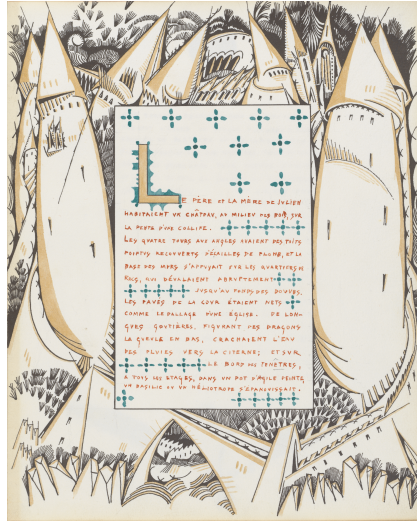 LE PÈRE ET LA MÈRE DE JULIEN
HABITAIENT UN CHÂTEAU, AU MILIEU DES BOIS, SUR
LA PENTE D'UNE COLLINE.
LES QUATRE TOURS AUX ANGLES AVAIENT DES TOITS
POINTUS RECOUVERTS D'ÉCAILLES DE PLOMB, ET LA
BASE DES MURS S'APPUYAIT SUR LES QUARTIERS DE
ROCS, QUI DÉVALAIENT ABRUPTEMENT
JUSQU'AU FOND DES DOUVES.
LES PAVÉS DE LA COUR ÉTAIENT NETS
COMME LE DALLAGE D'UNE ÉGLISE. DE LON-
GUES GOUTIÈRES, FIGURANT DES DRAGONS
LA GUEULE EN BAS, CRACHAIENT L'EAU
DES PLUIES VERS LA CITERNE; ET SUR
LE BORD DES FENÊTRES,
À TOUS LES ÉTAGES, DANS UN POT D'ARGILE PEINTE,
UN BASILIC OU UN HÉLIOTROPE S'ÉPANOUISSAIT.